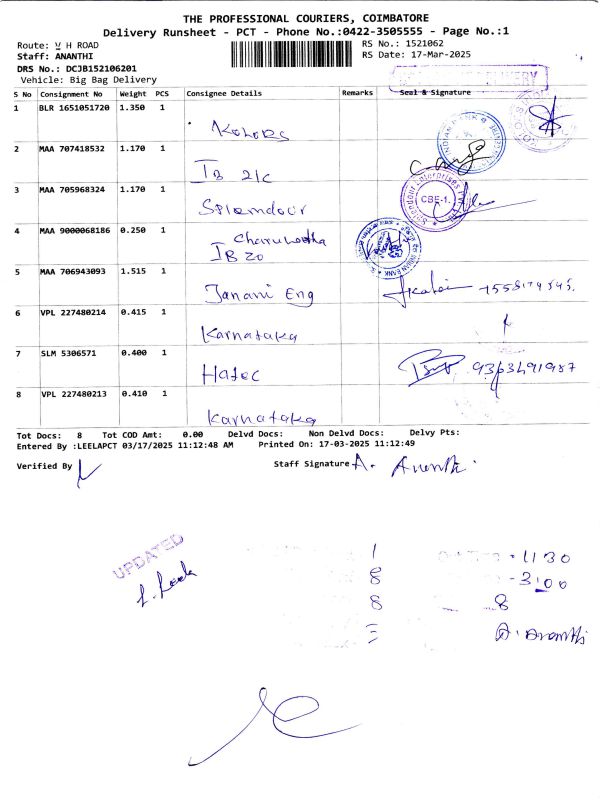 THE PROFESSIONAL COURIERS, COIMBATORE
Delivery Runsheet - PCT - Phone No.:0422-3505555 - Page No.:1
Route: V H ROAD
Staff: ANANTHI
DRS No.: DCJB152106201
Vehicle: Big Bag Delivery
RS No.: 1521062
RS Date: 17-Mar-2025
S No Consignment No Weight PCS Consignee Details Remarks Seal & Signature
1 BLR 1651051720 1.350 1 Kolors
2 MAA 707418532 1.170 1 IB 21C
3 MAA 705968324 1.170 1 Splendour
CBE-1.
4 MAA 9000068186 0.250 1
IB 20
5 MAA 706943093 1.515 1 Janani Eng
6 VPL 227480214 0.415 1 Karnataka
7 SLM 5306571 0.400 1 Hatec 9363491987
8 VPL 227480213 0.410 1 Karnataka
Tot Docs: 8 Tot COD Amt: 0.00 Delvd Docs: Non Delvd Docs: Delvy Pts:
Entered By :LEELAPCT 03/17/2025 11:12:48 AM Printed On: 17-03-2025 11:12:49
Verified By Staff Signature A. Ananthi
UPDATED
1 1130
8 3:00
8 8
A. Ananthi